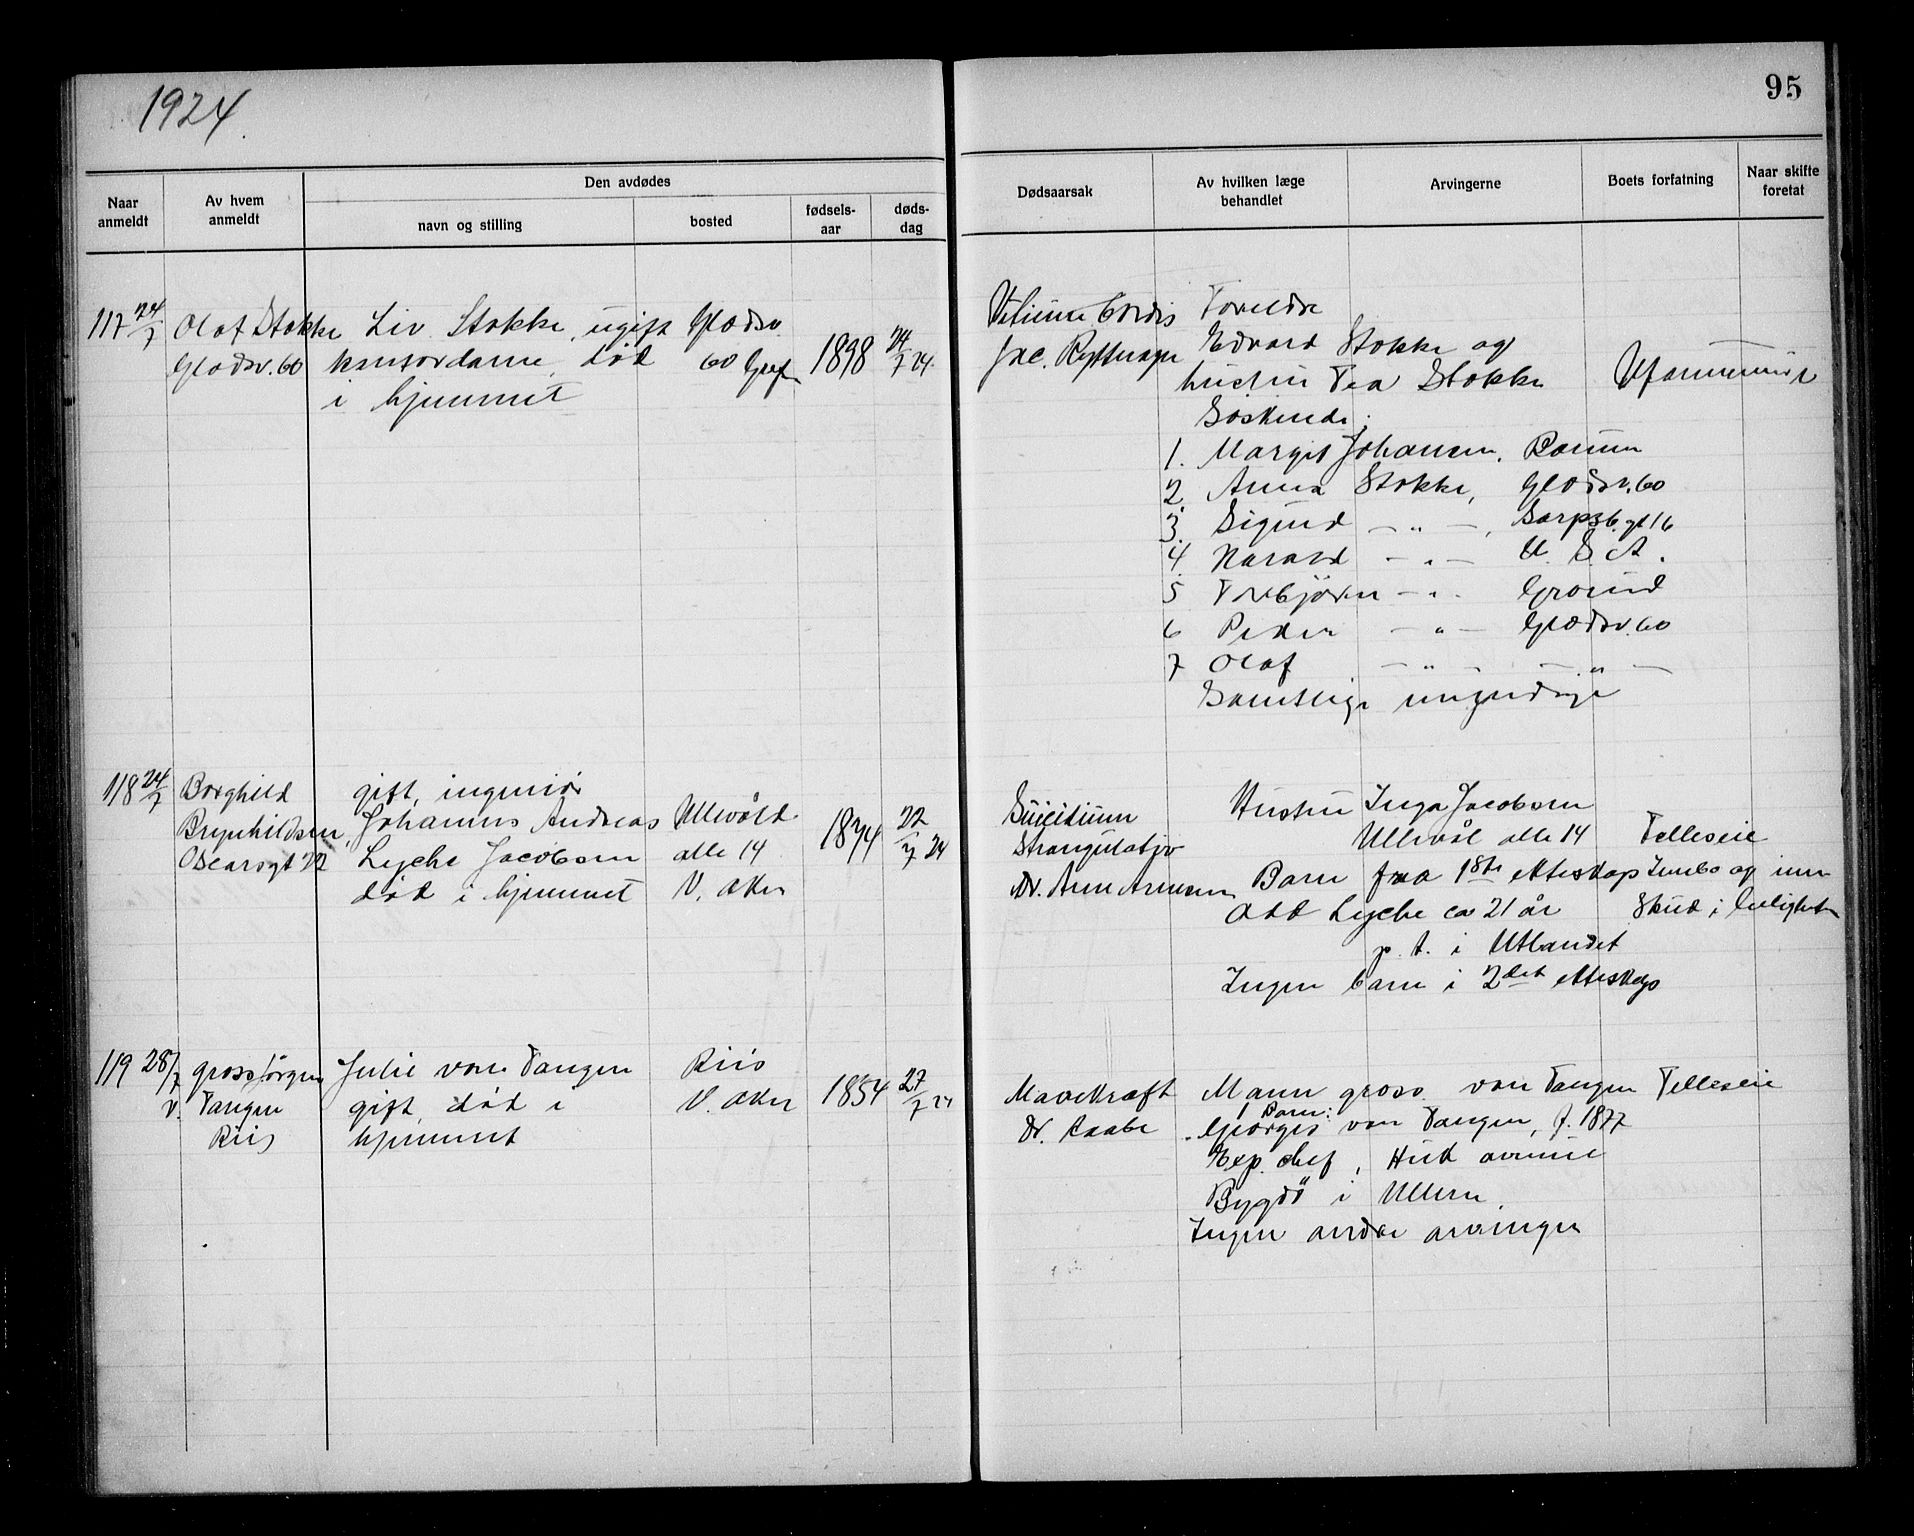 1924.
95
Naar anmeldt
Av hvem anmeldt
Den avdødes
navn og stilling
bosted
fødselsaar
dødsdag
Dødsaarsak
Av hvilken læge behandlet
Arvingerne
Boets forfatning
Naar skifte foretat
117 24/7 Olaf Stokke Liv Stokke, ugift Gladsv. 1898 24/7 24.
Gladsv. 60 kontordame, død 60
i hjemmet
Vitium Cordis Foreldre
Jac. Edvard Stokke og
hustru Tea Stokke Uformuende
Søskende:
1. Margit Johansen, Bærum
2. Anna Stokke, Gladsv. 60
3. Sigurd — " —, Sarpsb.gt 16
4. Harald — " — U. S. A.
5 Torbjörn — " — Grorud
6 Peder — " — Gladsv. 60
7 Olaf — " — — " —
Samtlige myndige
118 24/7 Borghild gift, ingeniør
Brynhildsen, Johannes Andreas Ullevåld 1874 22/7 24
Oscarsgt 22 Lyche Jacobsen alle 14
død i hjemmet V. Aker
Suicidium Hustru Inga Jacobsen
Strangulatio Ullevål alle 14 Felleseie
Dr. Arne Barn fra 1ste ekteskap Innbo og inn
Odd Lyche ca 21 år skud i leilighet
p. t. i Utlandet
Ingen barn i 2det ekteskap
119 28/7 gross Jörgen Julie von Tangen Riis 1854 27/7 24
v. Tangen gift, død i V. Aker
Riis hjemmet
Mavekræft Mann gross. von Tangen Felleseie
Barn:
Dr. Raabe Georges von Tangen, f. 1877
Exp. chef, Huk avenue
Bygdö i Ullern.
Ingen andre arvinger